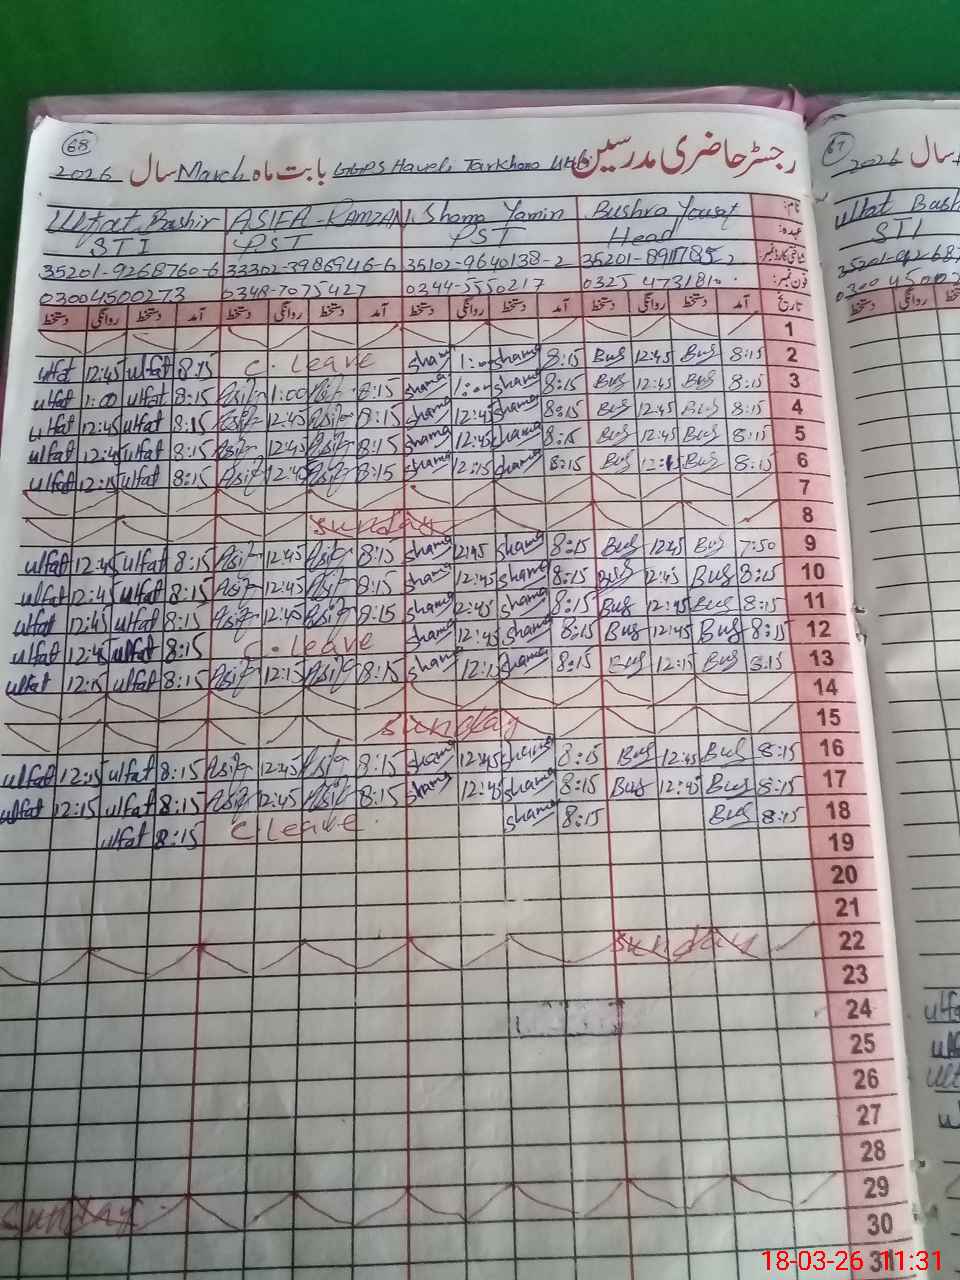 68
رجسٹر حاضری مدرسین GGPS Haveli Tarkhana بابت ماہ March سال 2026
نام: Bushra Yousaf Shama Yamin ASIFA RAMZAN Ulfat Bashir
عہدہ: Head PST PST STI
شناختی کارڈ نمبر 35102-9640138-2 33302-3986946-6 35201-9268760-6
فون نمبر: 0325 0344-5550217 0348-7075427 03004500273
تاریخ آمد دستخط روانگی دستخط آمد دستخط روانگی دستخط آمد دستخط روانگی دستخط آمد دستخط روانگی دستخط
1
2 8:15 Bus 12:45 Bus 8:15 shama 1:00 shama C. Leave 8:15 ulfat 12:45 ulfat
3 8:15 Bus 12:45 Bus 8:15 shama 1:00 shama 8:15 Asifa 1:00 Asifa 8:15 ulfat 1:00 ulfat
4 8:15 Bus 12:45 Bus 8:15 shama 12:45 shama 8:15 Asifa 12:45 Asifa 8:15 ulfat 12:45 ulfat
5 8:15 Bus 12:45 Bus 8:15 shama 12:45 shama 8:15 Asifa 12:45 Asifa 8:15 ulfat 12:45 ulfat
6 8:15 Bus 12:15 Bus 8:15 shama 12:15 shama 8:15 Asifa Asifa 8:15 ulfat 12:15 ulfat
7
8 sunday
9 7:50 Bus 12:45 Bus 8:15 shama 12:45 shama 8:15 Asifa 12:45 Asifa 8:15 ulfat 12:45 ulfat
10 8:15 Bus 12:45 Bus 8:15 shama 12:45 shama 8:15 Asifa 12:45 Asifa 8:15 ulfat 12:45 ulfat
11 8:15 Bus 12:45 Bus 8:15 shama 12:45 shama 8:15 Asifa 12:45 Asifa 8:15 ulfat 12:45 ulfat
12 8:15 Bus 12:45 Bus 8:15 shama 12:45 shama C. Leave 8:15 ulfat 12:45 ulfat
13 8:15 Bus 12:15 Bus 8:15 shama 12:15 shama 8:15 Asifa 12:15 Asifa 8:15 ulfat 12:15 ulfat
14
15 sunday
16 8:15 Bus 12:45 Bus 8:15 shama 12:45 shama 8:15 Asifa 12:45 Asifa 8:15 ulfat 12:15 ulfat
17 8:15 Bus 12:45 Bus 8:15 shama 12:45 shama 8:15 Asifa 12:45 Asifa 8:15 ulfat 12:15 ulfat
18 8:15 Bus 8:15 shama C Leave 8:15 ulfat
19
20
21
22 sunday
23
24
25
26
27
28
29 sunday
30
31
67
سال 2026
Ulfat Bash
STI
18-03-26 11:31